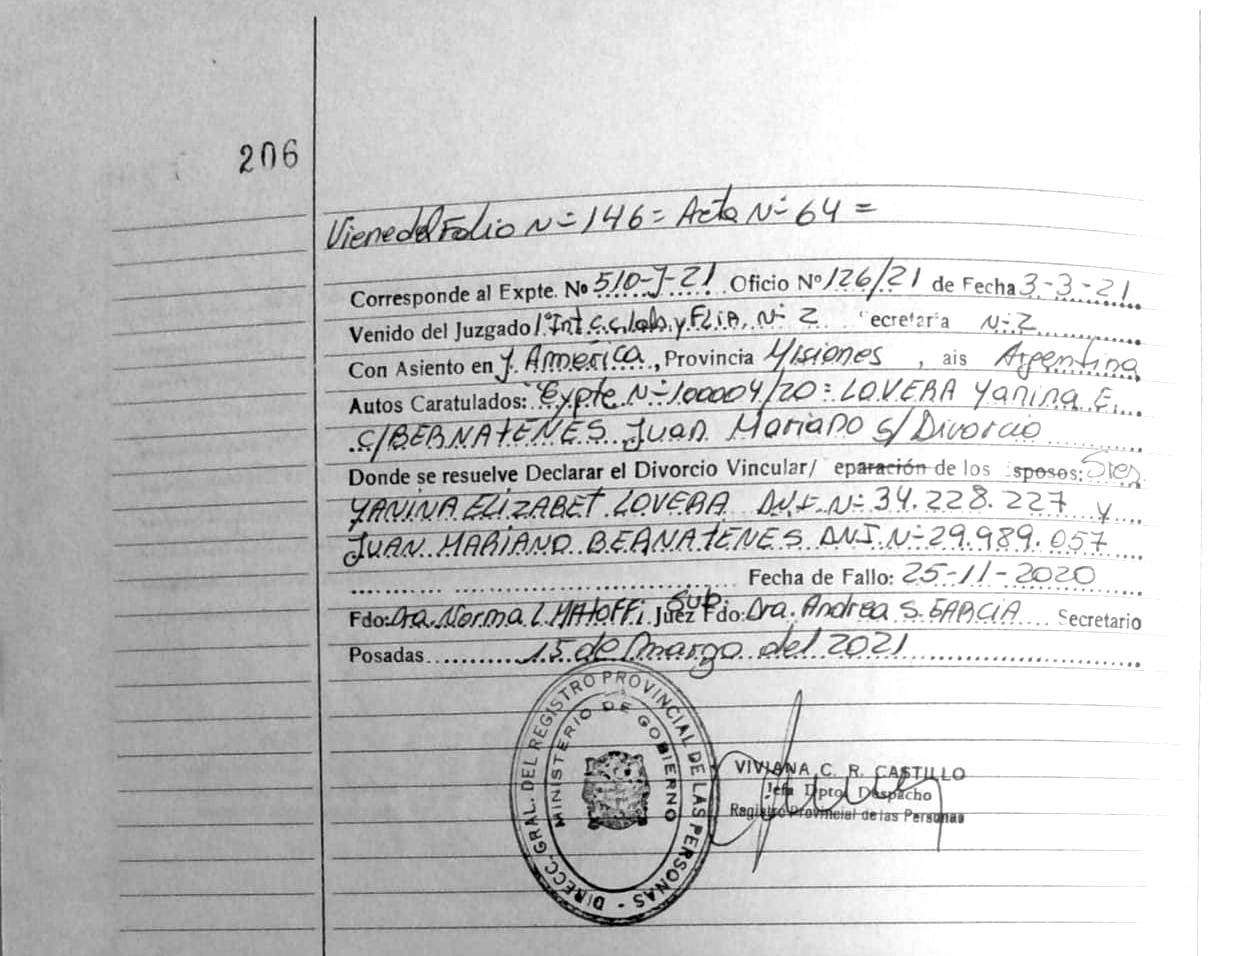 206
Viene del Folio Nº 146 = Acta Nº 64 =
Corresponde al Expte. Nº 510-J-21 Oficio Nº 126/21 de Fecha 3-3-21
Venido del Juzgado 1º Int C.C. Lab. y FLIA. Nº 2 ecretar a Nº 2
Con Asiento en J. América, Provincia Misiones, ais Argentina
Autos Caratulados: Expte Nº 100004/20: LOVERA Yanina E.
C/BERNATENES Juan Mariano s/ Divorcio
Donde se resuelve Declarar el Divorcio Vincular/ eparación de los sposos: Sres
YANINA ELIZABET LOVERA D.N.I. Nº 34.228.227 y
JUAN MARIANO BERNATENES DNI Nº 29.989.057
Fecha de Fallo: 25-11-2020
Fdo: Dra. Norma L. Juez Sup Fdo: Dra. Andrea S. GARCIA Secretario
Posadas 15 de marzo del 2021
DIRECC. GRAL. DEL REGISTRO PROVINCIAL DE LAS PERSONAS -
MINISTERIO DE GOBIERNO
VIVIANA C. R. CASTILLO
Jefa Dpto. Despacho
Registro Provincial de las Personas